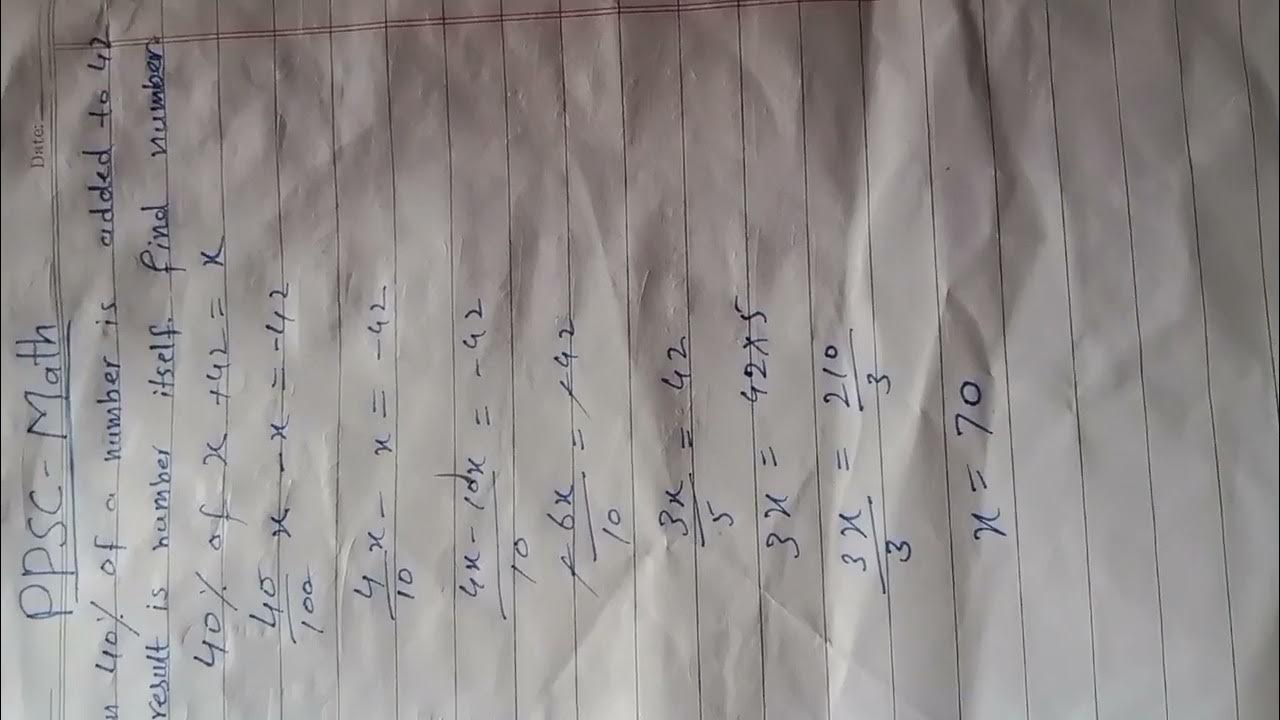 PPSC - Math
Date:
40% of a number is added to 42
result is number itself. find number.
40% of x + 42 = x
40/100 x - x = -42
4/10 x - x = -42
4x - 10x / 10 = -42
-6x/10 = -42
3x/5 = 42
3x = 42×5
3x/3 = 210/3
x = 70